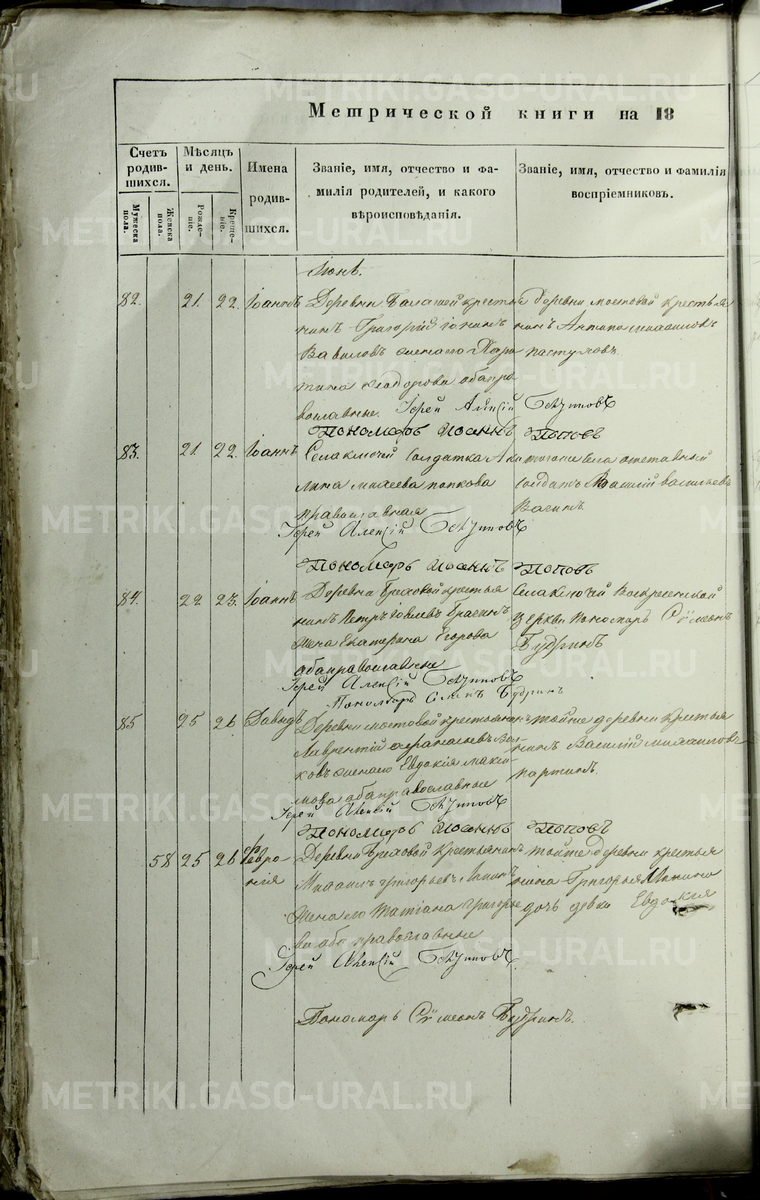 Метрической книги на 18
Счетъ родив-шихся.
Мужеска пола.
Женска пола.
Мѣсяцъ и день.
Рожде-ніе.
Креще-ніе.
Имена родив-шихся.
Званіе, имя, отчество и фа-
милія родителей, и какого
вѣроисповѣданія.
Званіе, имя, отчество и фамилія
воспріемниковъ.
Іюнь.
82. 21. 22. Іоаннъ Деревни крестья
нинъ Григорій
Вавиловъ жена его
Феодорова оба пра
вославные. Іерей Алексій Бѣгуновъ
деревни мостовой крестья
нинъ Михаиловъ
пастуховъ.
Пономарь Иоаннъ Поповъ
83. 21. 22. Іоаннъ Села ключей солдатка
Попкова
православная
Іерей Алексій Бѣгуновъ
тогоже села отставный
солдатъ Василій Васильевъ
Пономарь Иоаннъ Поповъ
84. 22. 23. Іоаннъ Деревни крестья
нинъ Петръ
жена Екатерина Егорова
оба православные
Іерей Алексій Бѣгуновъ
Пономарь Будринъ
Села ключей Воскресенской
церкви пономарь Сѵмеонъ
Будринъ
85 25 26 Давидъ Деревни мостовой крестьянинъ
Лаврентій
жена его Евдокія Макси
мова оба православные
Іерей Алексій Бѣгуновъ
тойже деревни крестья
нинъ Василій Михаиловъ
Пономарь Иоаннъ Поповъ
58 25 26 Февро
нія Деревни крестьянинъ
Михаилъ Григорьевъ
жена его Татіана Григорье
ва оба православные
Іерей Алексій Бѣгуновъ
тойже деревни крестья
нина Григорья
дочь девка Евдокия
Пономарь Сѵмеонъ Будринъ.
METRIKI.GASO-URAL.RU